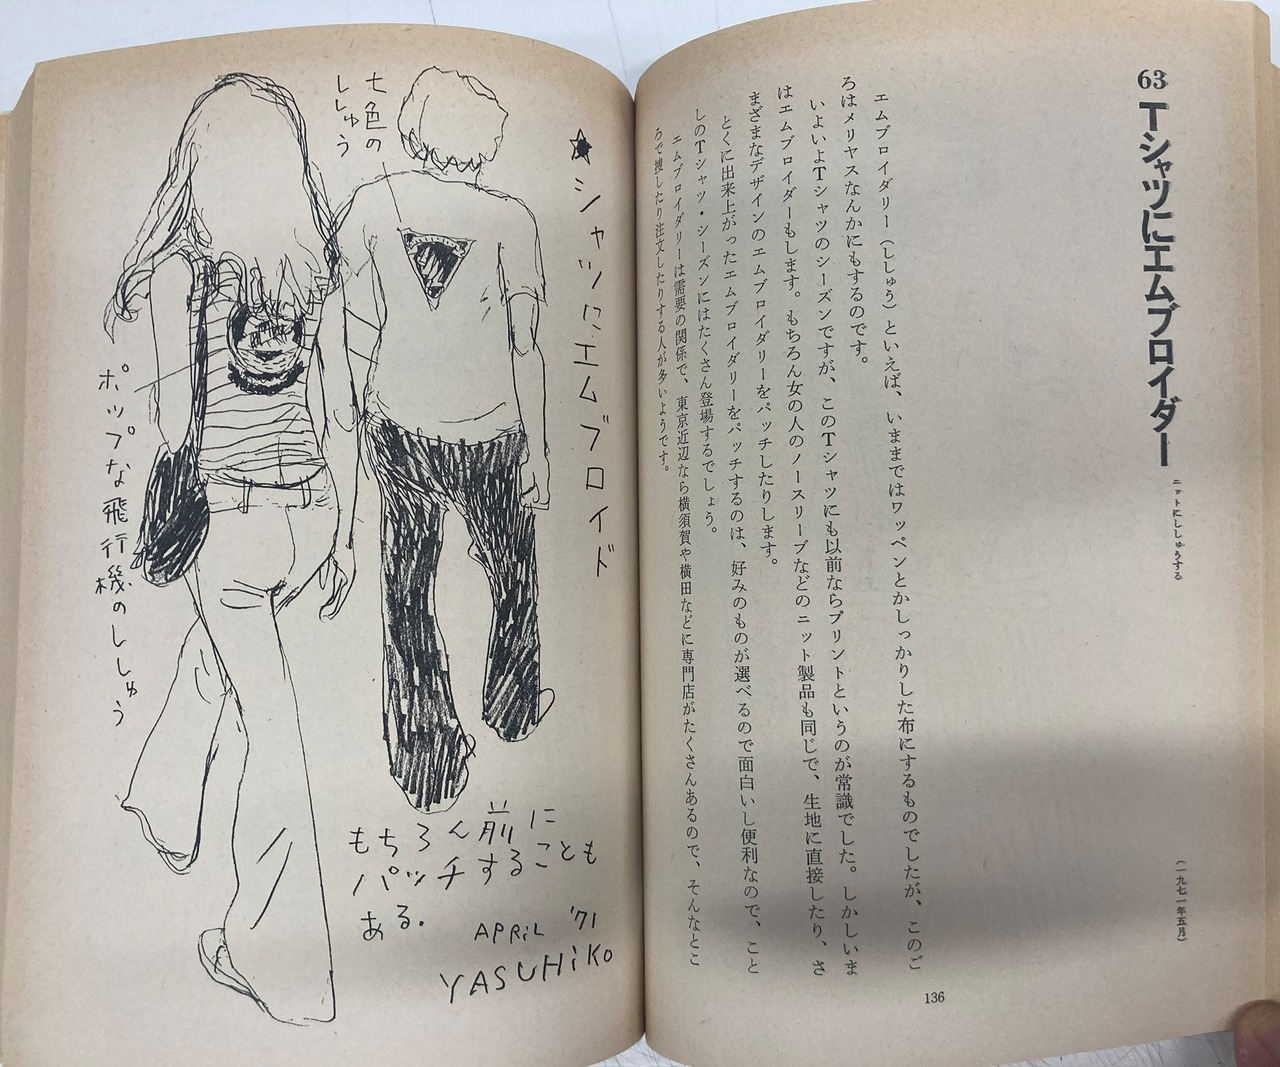 63 Tシャツにエムブロイダー
ニットにししゅうする
(一九七一年五月)
エムブロイダリー(ししゅう)といえば、いままではワッペンとかしっかりした布にするものでしたが、このご
ろはメリヤスなんかにもするのです。
いよいよTシャツのシーズンですが、このTシャツにも以前ならプリントというのが常識でした。しかしいま
はエムブロイダーもします。もちろん女の人のノースリーブなどのニット製品も同じで、生地に直接したり、さ
まざまなデザインのエムブロイダリーをパッチしたりします。
とくに出来上がったエムブロイダリーをパッチするのは、好みのものが選べるので面白いし便利なので、こと
しのTシャツ・シーズンにはたくさん登場するでしょう。
エムブロイダリーは需要の関係で、東京近辺なら横須賀や横田などに専門店がたくさんあるので、そんなとこ
ろで捜したり注文したりする人が多いようです。
136
★シャツにエムブロイド
七色の
ししゅう
ポップな飛行機のししゅう
もちろん前に
パッチすることも
ある.
APRiL '71
YASUHiKO